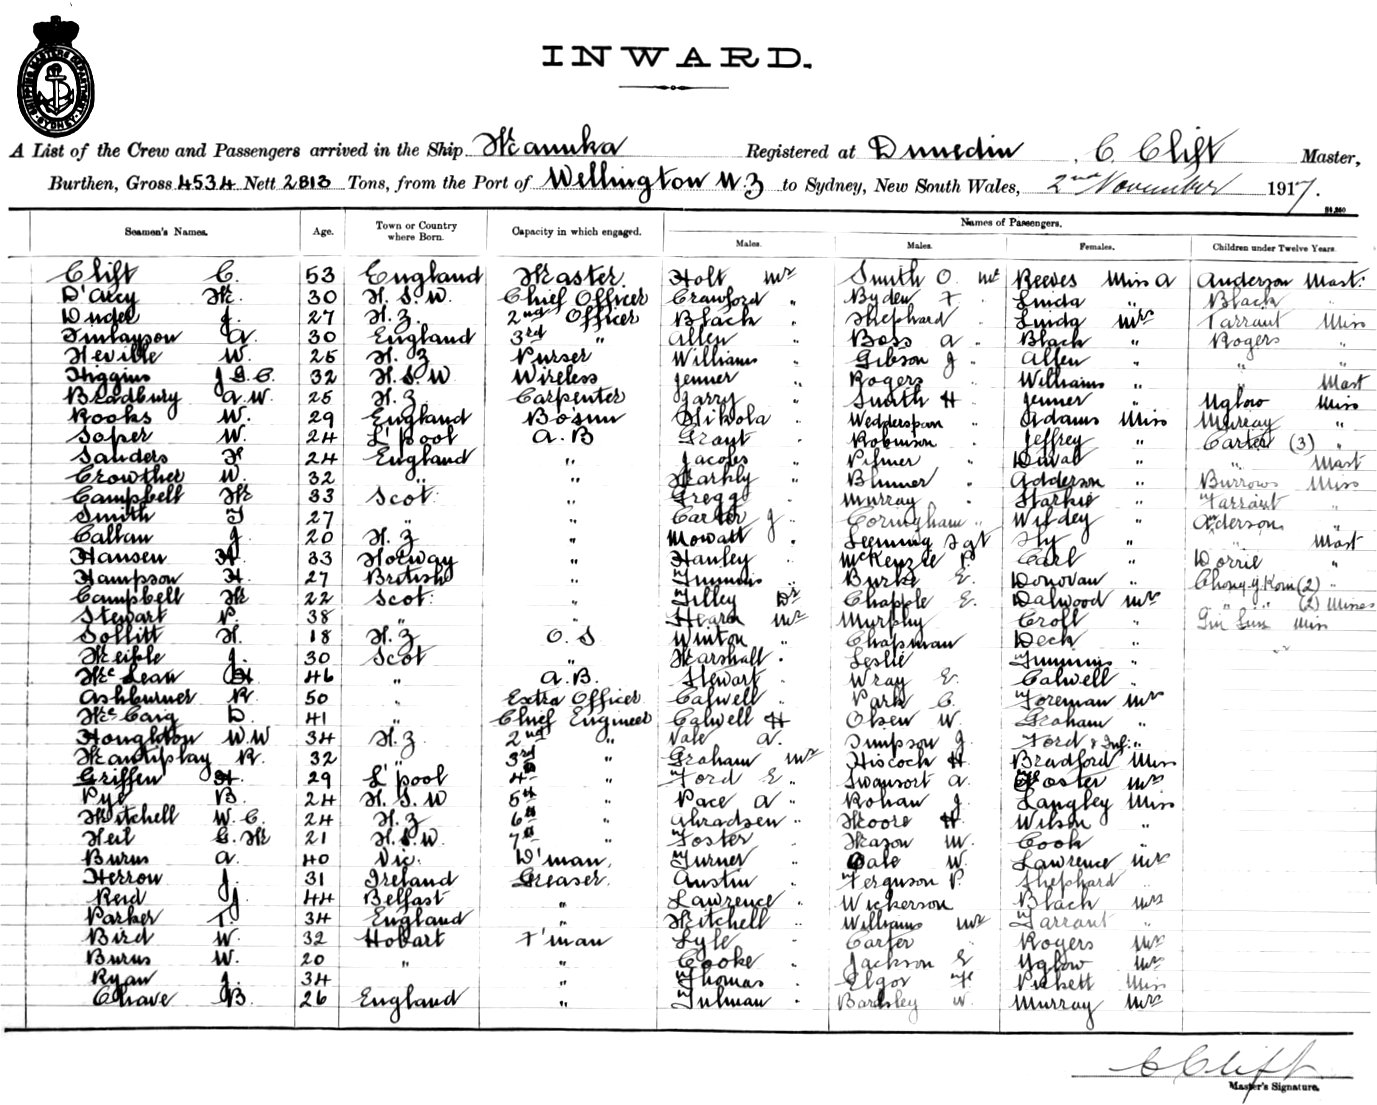 SHIPPING MASTERS DEPARTMENT SYDNEY
INWARD.
A List of the Crew and Passengers arrived in the Ship Manuka Registered at Dunedin, C Clift Master,
Burthen, Gross 4534 Nett 2813 Tons, from the Port of Wellington N.Z to Sydney, New South Wales, 2nd November 1917.
Seamen's Names. Age. Town or Country where Born. Capacity in which engaged. Names of Passengers.
Males. Males. Females. Children under Twelve Years.
Clift C. 53 England Master. Holt Mr Smith O. Mr Reeves Miss A Anderson Mast.
D'Arcy M. 30 N.S.W. Chief Officer Crawford " Byden F. " Linda " Black "
J. 27 N.Z. 2nd Officer Black " Shephard " Linda Mrs Tarrant Miss
Finlayson A. 30 England 3rd " Allen " Boss A " Black " Rogers "
Neville W. 25 N.Z Purser Williams " Gibson J " Allen " " "
Higgins J.G.C. 32 N.S.W Wireless Jenner " Rogers " Williams " Mast
Bradbury A.W. 25 N.Z. Carpenter Garry " Smith H " Jenner " Uglow Miss
Rooks W. 29 England Bosun Nikola " Wedderspoon " Adams Miss Murray "
Soper W. 24 L'pool A.B Grant " Robinson " Jeffrey " Carter (3) "
Sanders 24 England " Jacobs " " Duval " " Mast
Crowther W. 32 " " Markly " Blumer " Adderson " Burrows Miss
Campbell M 33 Scot. " Gregg " Murray " Starkie " Tarrant "
Smith T 27 " " Carter J " Coringham " Wildey " Anderson "
Callan J. 20 N.Z " Mowatt " Leeming Sgt Fly " " Mast
Hansen H. 33 Norway " Hanley " McKenzie P. Carl " Dorrie "
Hampson H. 27 British " Timmins " Burke E. Donovan " Chong G Kom (2) "
Campbell M 22 Scot: " Tilley Dr Chapple E. Dalwood Mrs " " (2) Misses
Stewart P. 38 " " Hearn Mr Murphy Croll " Gin Miss
Sollitt H. 18 N.Z O.S Winton " Chapman Beck "
Meikle J. 30 Scot " Marshall " Leslie Timmins "
McLean H 46 " A.B. Stewart " Wray E. Calwell "
Ashburner R. 50 " Extra Officer Calwell " Park C. Foreman Mrs
McCaig D. 41 " Chief Engineer Calwell H Olsen W. Graham "
Houghton W.W 34 N.Z. 2nd " Vale A. Simpson J. Ford & Inf. "
Mantiplay R. 32 " 3rd " Graham Mr Hiscoch H Bradford Miss
Griffin H. 29 L'pool 4th " Ford E " A. Foster Mrs
Pye B. 24 N.S.W 5th " Pace A " Rohan J. Langley Miss
Mitchell W.C. 24 N.Z. 6th " " Moore H. Wilson "
Neil C.M 21 N.S.W. 7th " Foster " Mason M. Cook "
Burns A. 40 Vic. D'man. Turner " Dale W. Lawrence Mrs
Herron J. 31 Ireland Greaser. Austin " Ferguson P. Shephard "
Reid J. 44 Belfast " Lawrence " Wickerson Black Mrs
Parker T. 34 England " Mitchell " Williams Mr Tarrant "
Bird W. 32 Hobart F'man Lyle " Carter " Rogers Mrs
Burns W. 20 " " Cooke " Jackson E Uglow Mrs
Ryan J. 34 " Thomas " Elgor Pickett Miss
Chave B. 26 England " Tulman " Bardsley W. Murray Mrs
C Clift
Master's Signature.